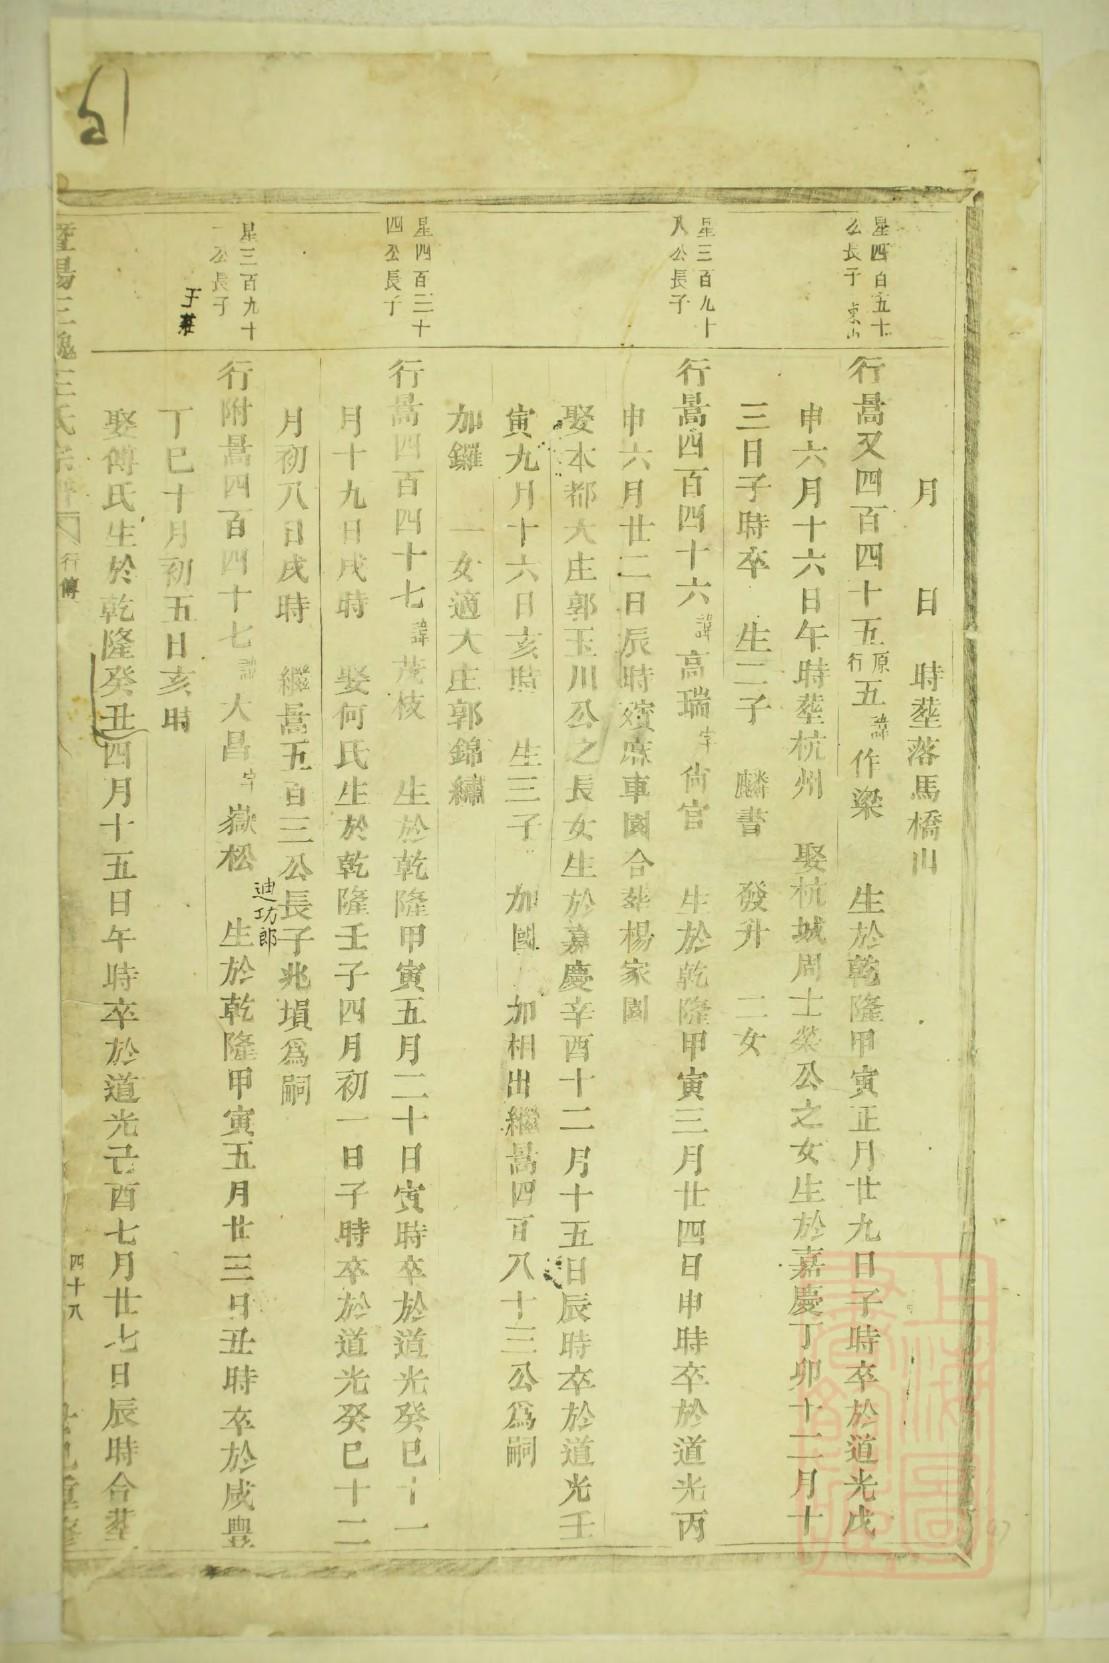 月　日　時塟落馬橋山
星四百五十
公長子　東山
行暠又四百四十五原行五諱作梁　生於乾隆甲寅正月廿九日子時卒於道光戊
申六月十六日午時塟杭州　娶杭城周士榮公之女生於嘉慶丁卯十二月十
三日子時卒　生二子　麟書　發升　二女
星三百九十
八公長子
行暠四百四十六諱高瑞字尙官　生於乾隆甲寅三月廿四日申時卒於道光丙
申六月廿二日辰時殯庶車園合葬楊家園
娶本都大庄郭玉川公之長女生於嘉慶辛酉十二月十五日辰時卒於道光壬
寅九月十六日亥時　生三子　加國　加相出繼暠四百八十三公爲嗣
加鑼　一女適大庄郭錦繡
星四百三十
四公長子
行暠四百四十七諱茂枝　生於乾隆甲寅五月二十日寅時卒於道光癸巳十一
月十九日戌時　娶何氏生於乾隆壬子四月初一日子時卒於道光癸巳十二
月初八日戌時　繼暠五百三公長子兆墳爲嗣
星三百九十
一公長子
于莊
行附暠四百四十七諱大昌字嶽松　迪功郎　生於乾隆甲寅五月廿三日丑時卒於咸豐
丁巳十月初五日亥時
娶傅氏生於乾隆癸丑四月十五日午時卒於道光己酉七月廿七日辰時合塟
暨陽三槐王氏宗譜　行傳　四十八
上海圖書館藏